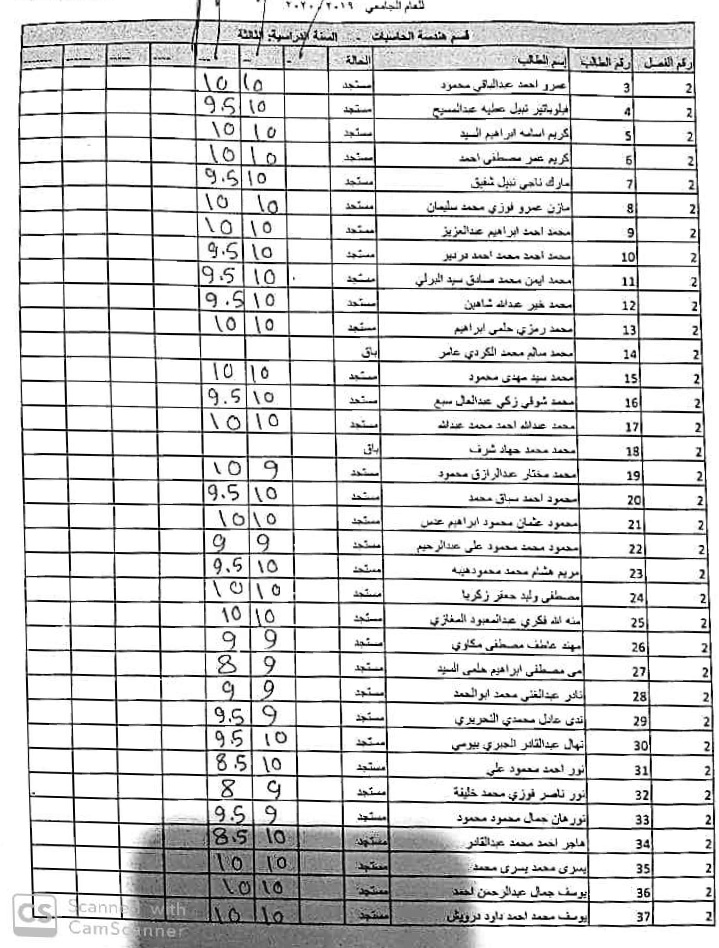 للعام الجامعي ٢٠١٩/٢٠٢٠
قسم هندسة الحاسبات - السنة الدراسية: الثالثة
رقم الفصل رقم الطالب إسم الطالب الحالة
2 3 عمرو احمد عبدالباقي محمود مستجد 10 10
2 4 فيلوباتير نبيل عطيه عبدالمسيح مستجد 10 9.5
2 5 كريم اسامه ابراهيم السيد مستجد 10 10
2 6 كريم عمر مصطفى احمد مستجد 10 10
2 7 مارك ناجي نبيل شفيق مستجد 10 9.5
2 8 مازن عمرو فوزي محمد سليمان مستجد 10 10
2 9 محمد احمد ابراهيم عبدالعزيز مستجد 10 10
2 10 محمد احمد محمد احمد دردير مستجد 10 9.5
2 11 محمد ايمن محمد صادق سيد البرلي مستجد 10 9.5
2 12 محمد خير عبدالله شاهين مستجد 10 9.5
2 13 محمد رمزي حلمى ابراهيم مستجد 10 10
2 14 محمد سالم محمد الكردي عامر باق
2 15 محمد سيد مهدى محمود مستجد 10 10
2 16 محمد شوقي زكي عبدالعال سبع مستجد 10 9.5
2 17 محمد عبدالله احمد محمد عبدالله مستجد 10 10
2 18 محمد محمد جهاد شرف باق
2 19 محمد مختار عبدالرازق محمود مستجد 9 10
2 20 محمود احمد سباق محمد مستجد 10 9.5
2 21 محمود عثمان محمود ابراهيم عدس مستجد 10 10
2 22 محمود محمد محمود على عبدالرحيم مستجد 9 9
2 23 مريم هشام محمد محمودهيبه مستجد 10 9.5
2 24 مصطفى وليد جعفر زكريا مستجد 10 10
2 25 منه الله فكري عبدالمعبود المغازي مستجد 10 10
2 26 مهند عاطف مصطفى مكاوي مستجد 9 9
2 27 مى مصطفى ابراهيم حلمى السيد مستجد 9 8
2 28 نادر عبدالغنى محمد ابوالحمد مستجد 9 9
2 29 ندى عادل محمدي التحريري مستجد 9 9.5
2 30 نهال عبدالقادر الجبري بيومي مستجد 10 9.5
2 31 نور احمد محمود علي مستجد 10 8.5
2 32 نور ناصر فوزي محمد خليفة مستجد 9 8
2 33 نورهان جمال محمود محمود مستجد 9 9.5
2 34 هاجر احمد محمد عبدالقادر مستجد 10 8.5
2 35 يسرى محمد يسرى محمد مستجد 10 10
2 36 يوسف جمال عبدالرحمن احمد مستجد 10 10
2 37 يوسف محمد احمد داود درويش مستجد 10 10
CS Scanned with
CamScanner